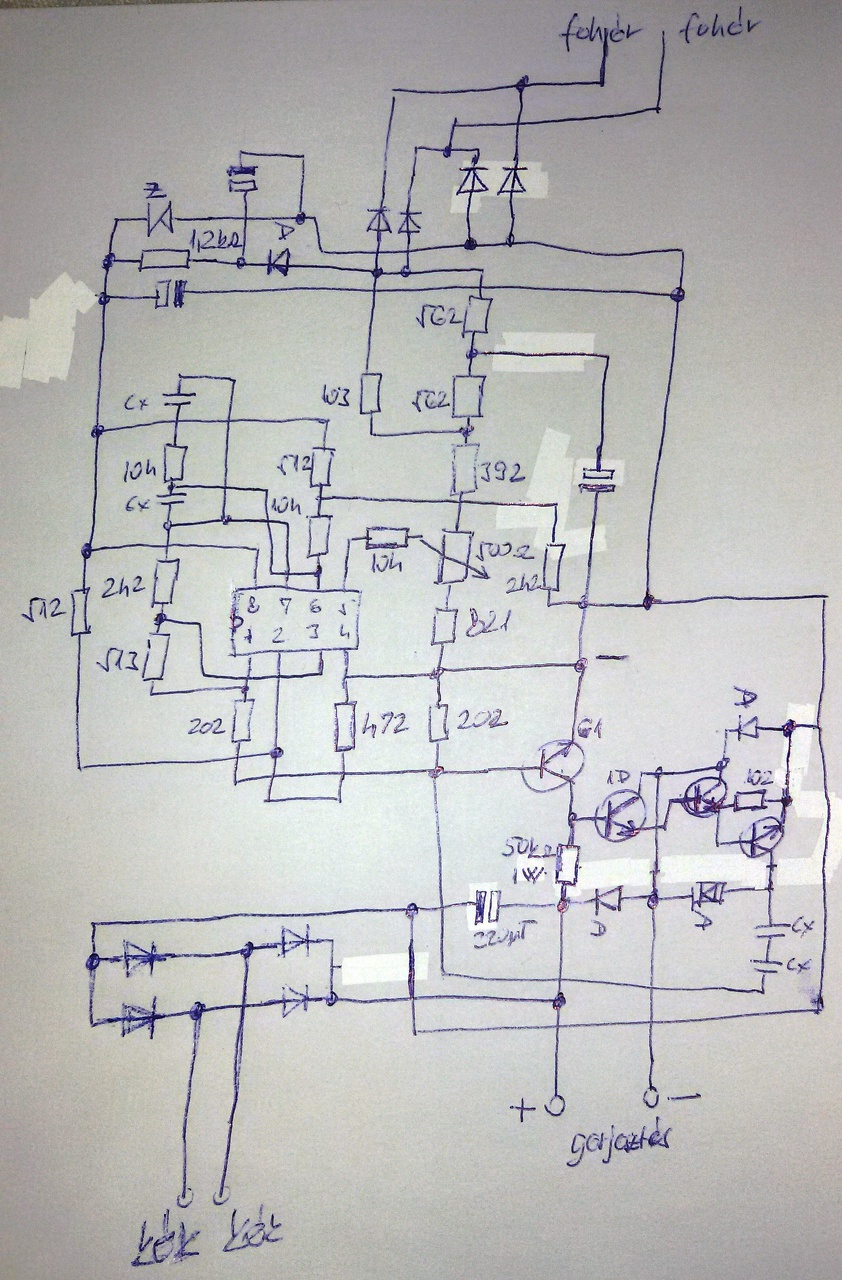 fehér fehér
Z
1,2kΩ
D
562
103
562
Cx
10k
512
392
Cx
10k
10k
500Ω
2k2
2k2
8 7 6 5
512
1 2 3 4
821
513
202
472
202
G1
D
1D
102
50kΩ
1W
D
D
220µF
Cx
Cx
+
−
gerjesztés